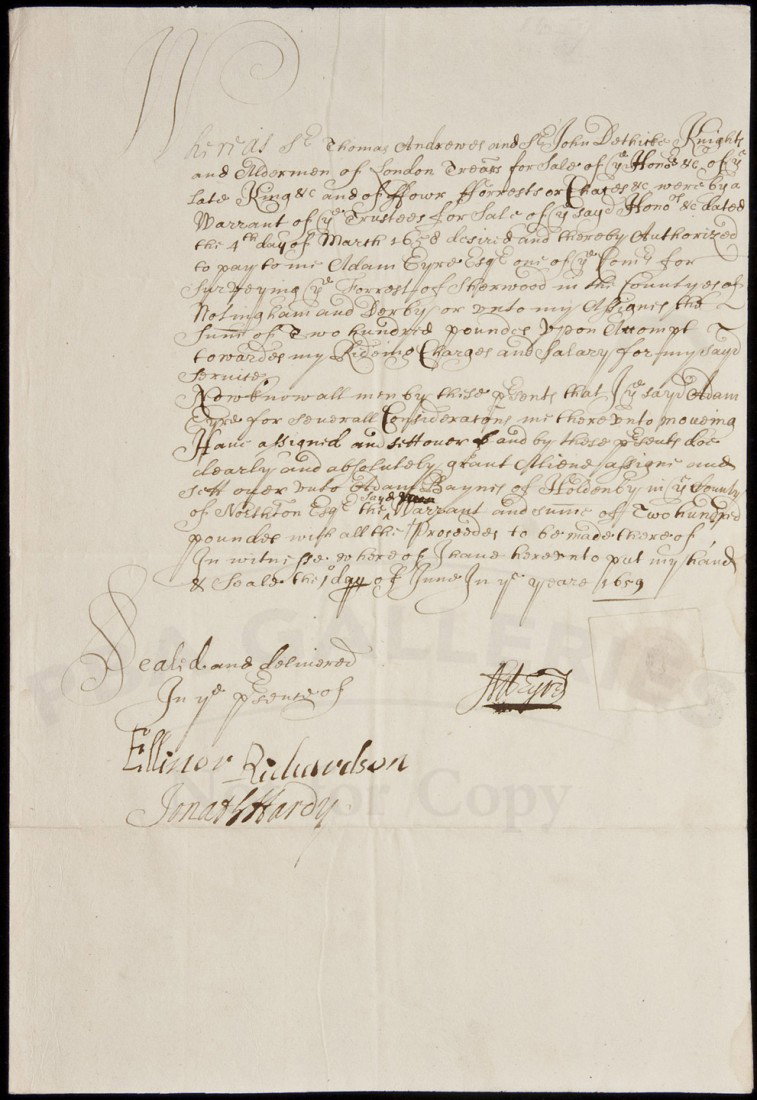 Whereas Sr Thomas Andrewes and Sr John Dethicke Knights
and Aldermen of London Treãrs for Sale of ye Honrs &c of ye
late King &c and of ffowr fforrests or Chases &c were by a
Warrant of ye Trustees for Sale of ye sayd Honors &c dated
the 4th day of March 1658 desired and thereby Authorized
to pay to me Adam Eyre Esqr one of ye Comrs for
surveying ye Forrest of Sherwood in the Countyes of
Notingham and Derby, or unto my Assignes the
Sum̃e of Two hundred poundes upon Accompt
towardes my Rideing Charges and Salary for my sayd
service,
Now know all men by these p̃sents that I ye sayd Adam
Eyre for severall Consideratons me thereunto moveing
Have assigned and sett over and by these p̃sents doe
clearly and absolutely grant Aliene assigne and
sett over unto Adam Baynes of Holdenby in ye County
of Northton Esqr the sayd Warrant and sume of Two hundred
poundes with all the Proceedes to be made thereof,
In witnesse whereof I have hereunto put my hand
& Seale the 1st day of June In ye yeare 1659
Sealed and delivered
In ye p̃sence of
Ad Eyre
Ellinor Richardson
Jonath Hardy
PBA GALLERIES
Not for Copy